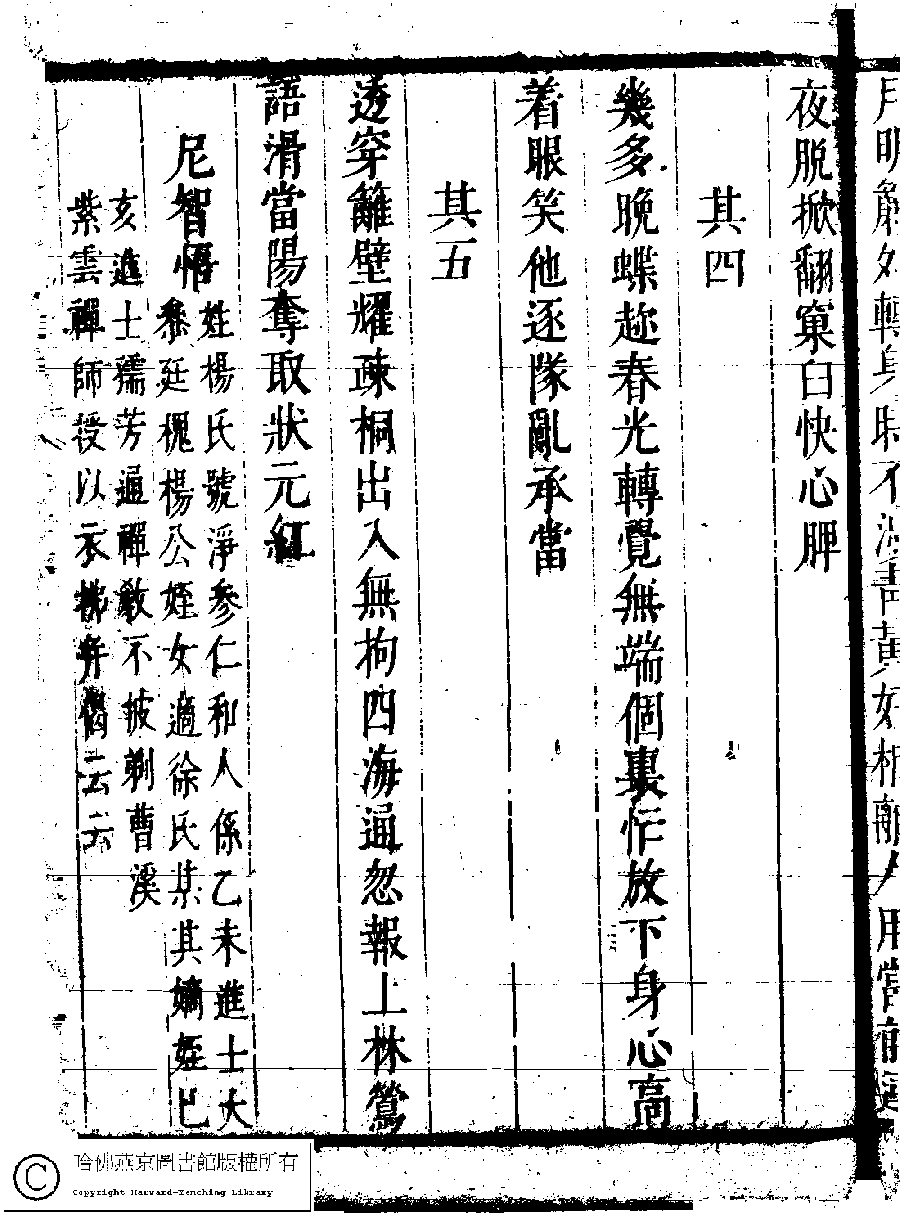 夜脱掀翻窠臼快心脾
其四
幾多晚蝶趂春光轉覺無端個裏忙放下身心高
着眼笑他逐隊亂承當
其五
透穿籬壁耀疎桐出入無拘四海通忽報上林鶯
語滑當陽奪取狀元紅
尼智悟
姓楊氏號淨參仁和人係乙未進士大
叅廷槐楊公姪女適徐氏某其嫡姪已
亥進士孺芳通禪教不披剃曹溪
紫雲禪師授以衣拂并偈云云
哈佛燕京圖書館版權所有
Copyright Harvard-Yenching Library